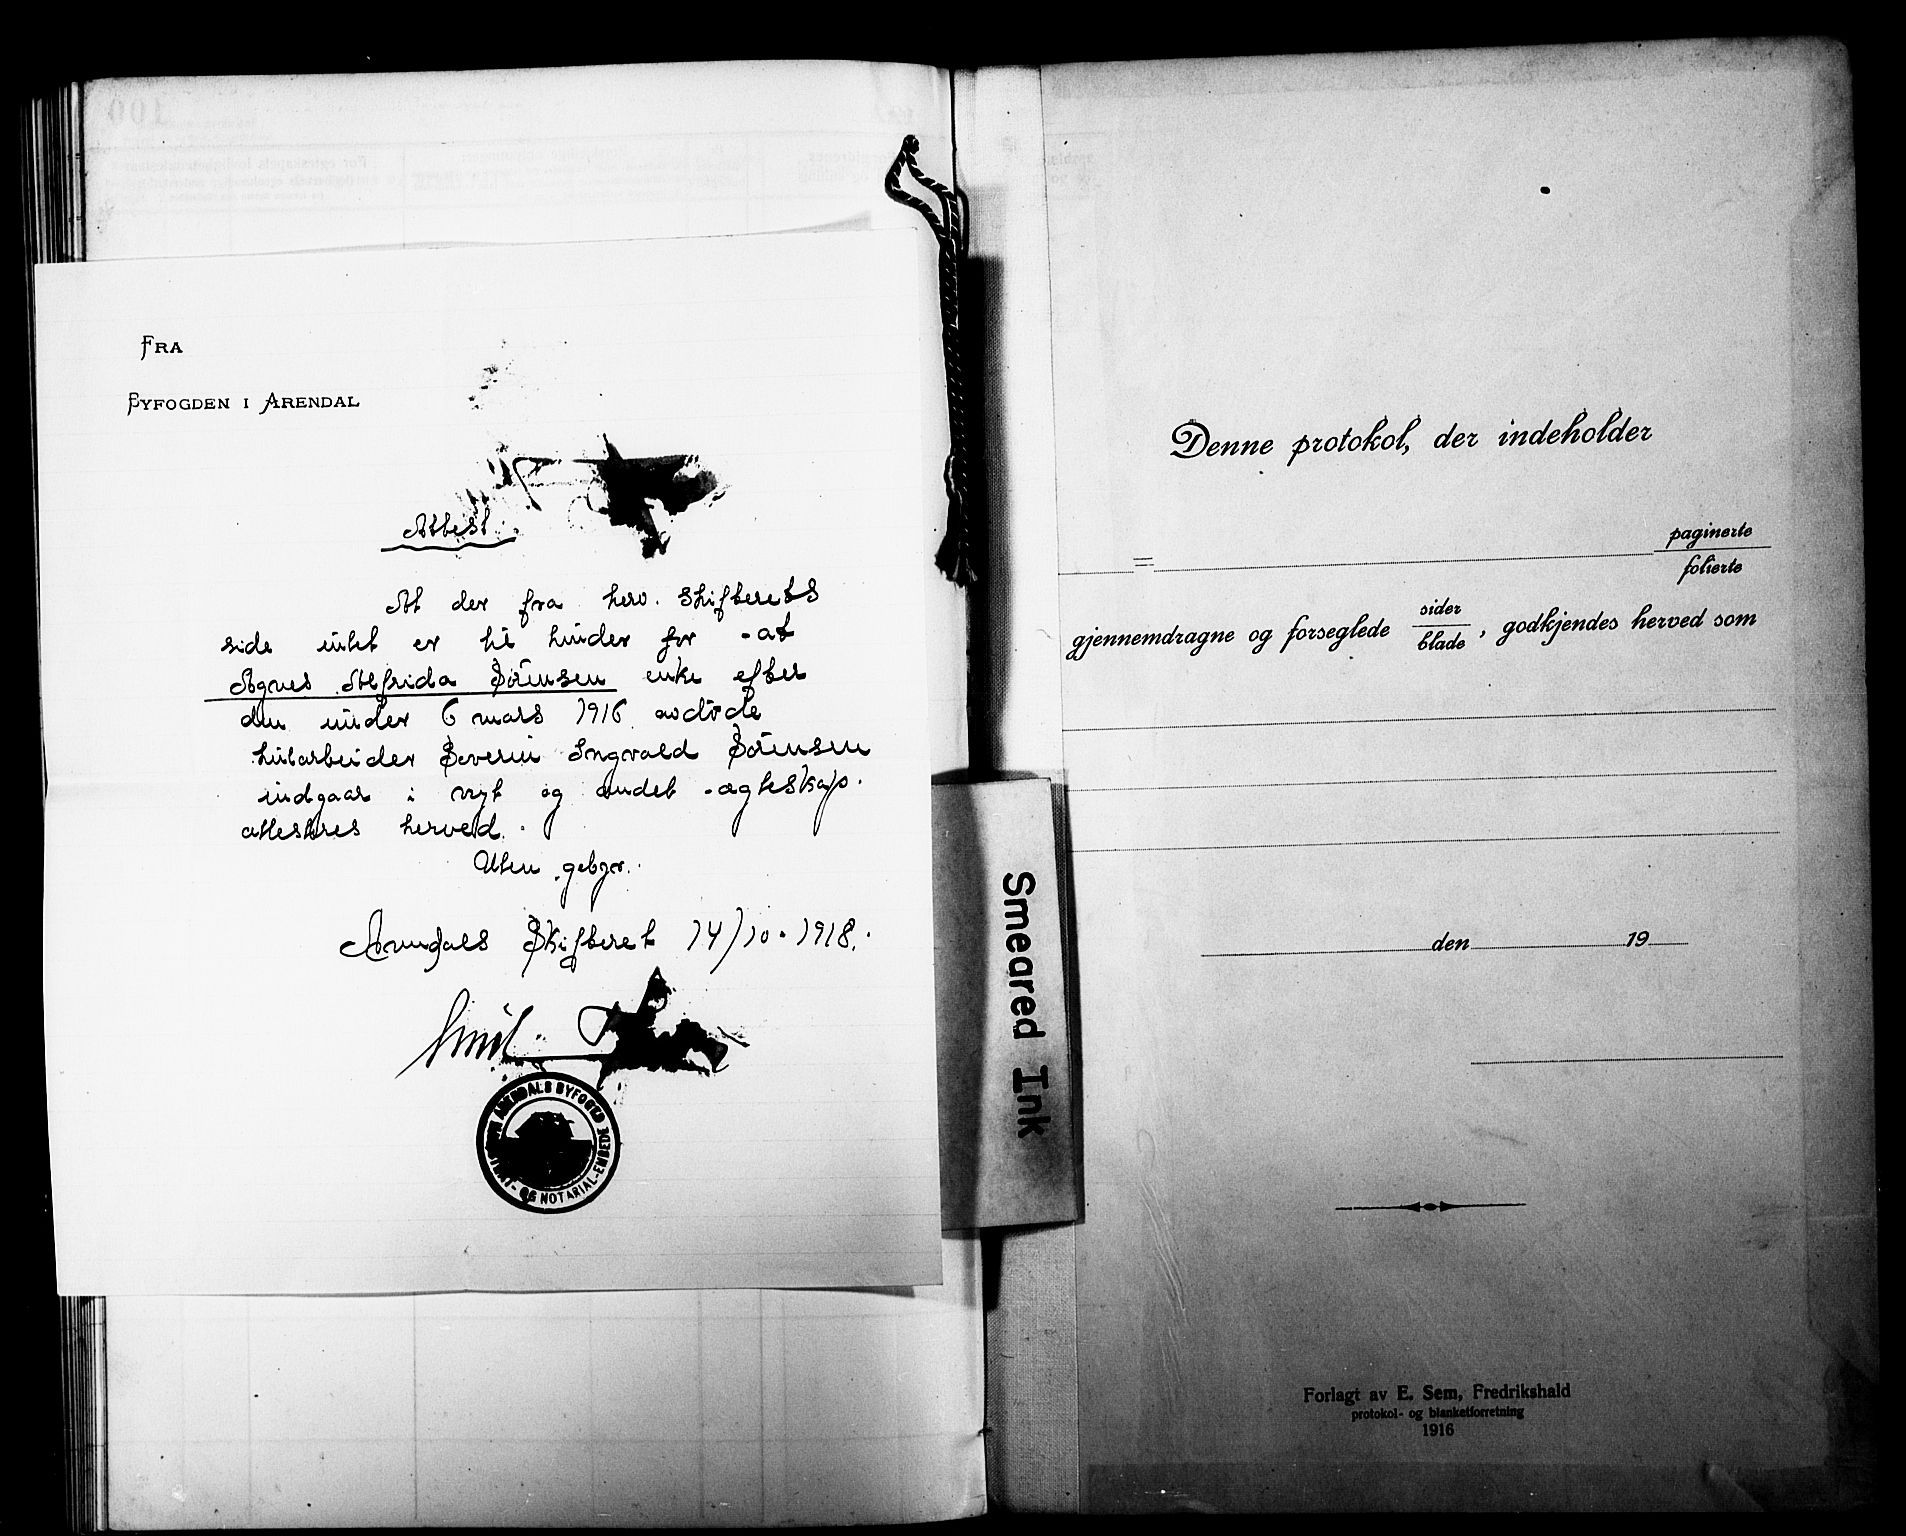 FRA
BYFOGDEN I ARENDAL
Attest.
At der fra herv. skifterets
side intet er til hinder for at
Agnes Alfrida Sörensen enke efter
den under 6 mars 1916 avdöde
hutarbeider Severin Ingvald Sörensen
indgaar i nyt og andet ægteskap
attesteres herved.
Uten gebyr.
Arendals Skifteret 14/10. 1918.
ARENDALS BYFOGED EMBEDE
OG NOTARIAL-
Smeared Ink
Denne protokol, der indeholder
= paginerte
folierte
gjennemdragne og forseglede sider
blade, godkjendes herved som
den 19
Forlagt av E. Sem, Fredrikshald
protokol- og blanketforretning
1916